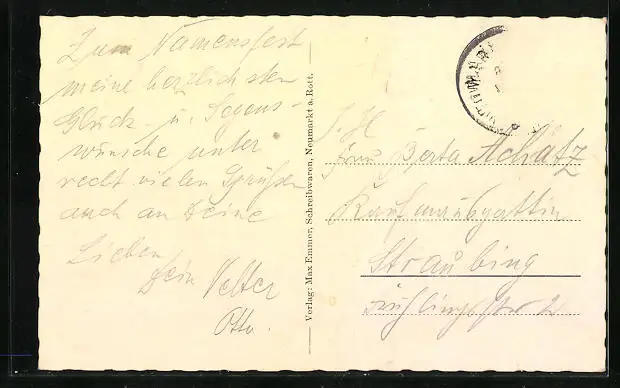 Zum Namensfest
meine herzlichsten
Glück- u. Segens-
wünsche unter
recht vielen Grüßen
auch an Deine
Lieben
Dein Vetter
Otto.
Verlag: Max Emmer, Schreibwaren, Neumarkt a. Rott.
Frau Berta Achatz
Kaufmannsgattin
Straubing